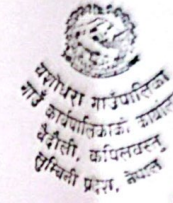 यशोधरा गाउँपालिका
गाउँ कार्यपालिकाको कार्यालय
बेदौली, कपिलवस्तु
लुम्बिनी प्रदेश, नेपाल